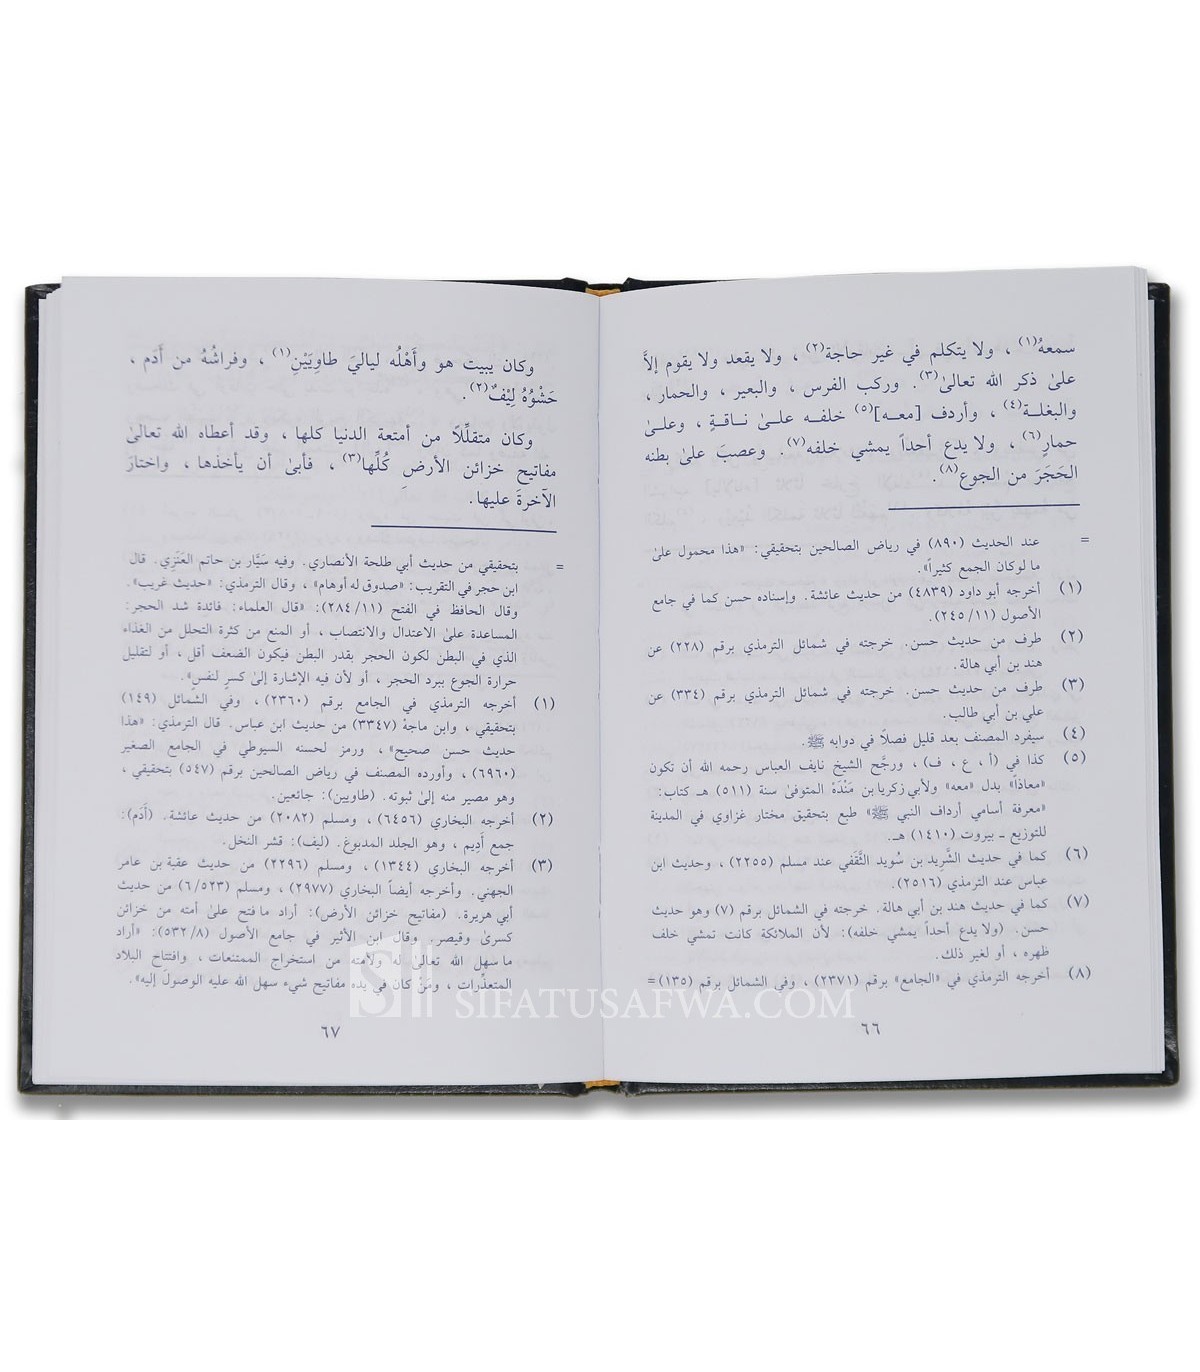 سمعهُ(١) ، ولا يتكلم في غير حاجة(٢) ، ولا يقعد ولا يقوم إلاَّ
علىٰ ذكر الله تعالىٰ(٣). وركب الفرس ، والبعير ، والحمار ،
والبغلـة(٤) ، وأردف [معـه](٥) خلفـه علـىٰ نـاقـةٍ ، وعلـىٰ
حمارٍ(٦) ، ولا يدع أحداً يمشي خلفه(٧). وعصبَ علىٰ بطنه
الحَجَرَ من الجوع(٨).
= عند الحديث (٨٩٠) في رياض الصالحين بتحقيقي: «هذا محمول علىٰ
ما لوكان الجمع كثيراً».
(١) أخرجه أبو داود (٤٨٣٩) من حديث عائشة. وإسناده حسن كما في جامع
الأصول (٢٤٥/١١).
(٢) طرف من حديث حسن. خرجته في شمائل الترمذي برقم (٢٢٨) عن
هند بن أبي هالة.
(٣) طرف من حديث حسن. خرجته في شمائل الترمذي برقم (٣٣٤) عن
علي بن أبي طالب.
(٤) سيفرد المصنف بعد قليل فصلاً في دوابه ﷺ.
(٥) كذا في (أ ، ع ، ف) ، ورجَّح الشيخ نايف العباس رحمه الله أن تكون
«معاذاً» بدل «معه» ولأبي زكريا بن مَنْدَهْ المتوفىٰ سنة (٥١١) هـ كتاب:
«معرفة أسامي أرداف النبي ﷺ» طبع بتحقيق مختار غزاوي في المدينة
للتوزيع ـ بيروت (١٤١٠) هـ.
(٦) كما في حديث الشَّرِيد بن سُويد الثَّقَفي عند مسلم (٢٢٥٥) ، وحديث ابن
عباس عند الترمذي (٢٥١٦).
(٧) كما في حديث هند بن أبي هالة. خرجته في الشمائل برقم (٧) وهو حديث
حسن. (ولا يدع أحداً يمشي خلفه): لأن الملائكة كانت تمشي خلف
ظهره ، أو لغير ذلك.
(٨) أخرجه الترمذي في «الجامع» برقم (٢٣٧١) ، وفي الشمائل برقم (١٣٥)=
٦٦
وكان يبيت هو وأَهْلُه لياليَ طاوِيَيْنِ(١) ، وفراشُهُ من أَدَم ،
حَشْوُهُ لِيْفٌ(٢).
وكان متقلِّلاً من أمتعة الدنيا كلها ، وقد أعطاه الله تعالىٰ
مفاتيح خزائن الأرضِ كُلِّها(٣) ، فأبىٰ أن يأخذها ، واختارَ
الآخرةَ عليها.
= بتحقيقي من حديث أبي طلحة الأنصاري. وفيه سَيَّار بن حاتم العَنَزِي. قال
ابن حجر في التقريب: «صدوق له أوهام» ، وقال الترمذي: «حديث غريب».
وقال الحافظ في الفتح (٢٨٤/١١): «قال العلماء: فائدة شد الحجر:
المساعدة علىٰ الاعتدال والانتصاب ، أو المنع من كثرة التحلل من الغذاء
الذي في البطن لكون الحجر بقدر البطن فيكون الضعف أقل ، أو لتقليل
حرارة الجوع ببرد الحجر ، أو لأن فيه الإشارة إلىٰ كسرِ لنفسِ».
(١) أخرجه الترمذي في الجامع برقم (٢٣٦٠) ، وفي الشمائل (١٤٩)
بتحقيقي ، وابن ماجهْ (٣٣٤٧) من حديث ابن عباس. قال الترمذي: «هذا
حديث حسن صحيح» ، ورمز لحسنه السيوطي في الجامع الصغير
(٦٩٦٠) ، وأورده المصنف في رياض الصالحين برقم (٥٤٧) بتحقيقي ،
وهو مصير منه إلىٰ ثبوته. (طاويين): جائعين.
(٢) أخرجه البخاري (٦٤٥٦) ، ومسلم (٢٠٨٢) من حديث عائشة. (أَدَم):
جمع أَدِيم ، وهو الجلد المدبوغ. (ليف): قشر النخل.
(٣) أخرجه البخاري (١٣٤٤) ، ومسلم (٢٢٩٦) من حديث عقبة بن عامر
الجهني. وأخرجه أيضاً البخاري (٢٩٧٧) ، ومسلم (٦/٥٢٣) من حديث
أبي هريرة. (مفاتيح خزائن الأرض): أراد ما فتح علىٰ أمته من خزائن
كسرىٰ وقيصر. وقال ابن الأثير في جامع الأصول (٥٣٢/٨): «أراد
ما سهل الله تعالىٰ له ولأمته من استخراج الممتنعات ، وافتتاح البلاد
المتعذِّرات ، ومَنْ كان في يده مفاتيح شيء سهل الله عليه الوصولَ إليه».
٦٧
SIFATUSAFWA.COM